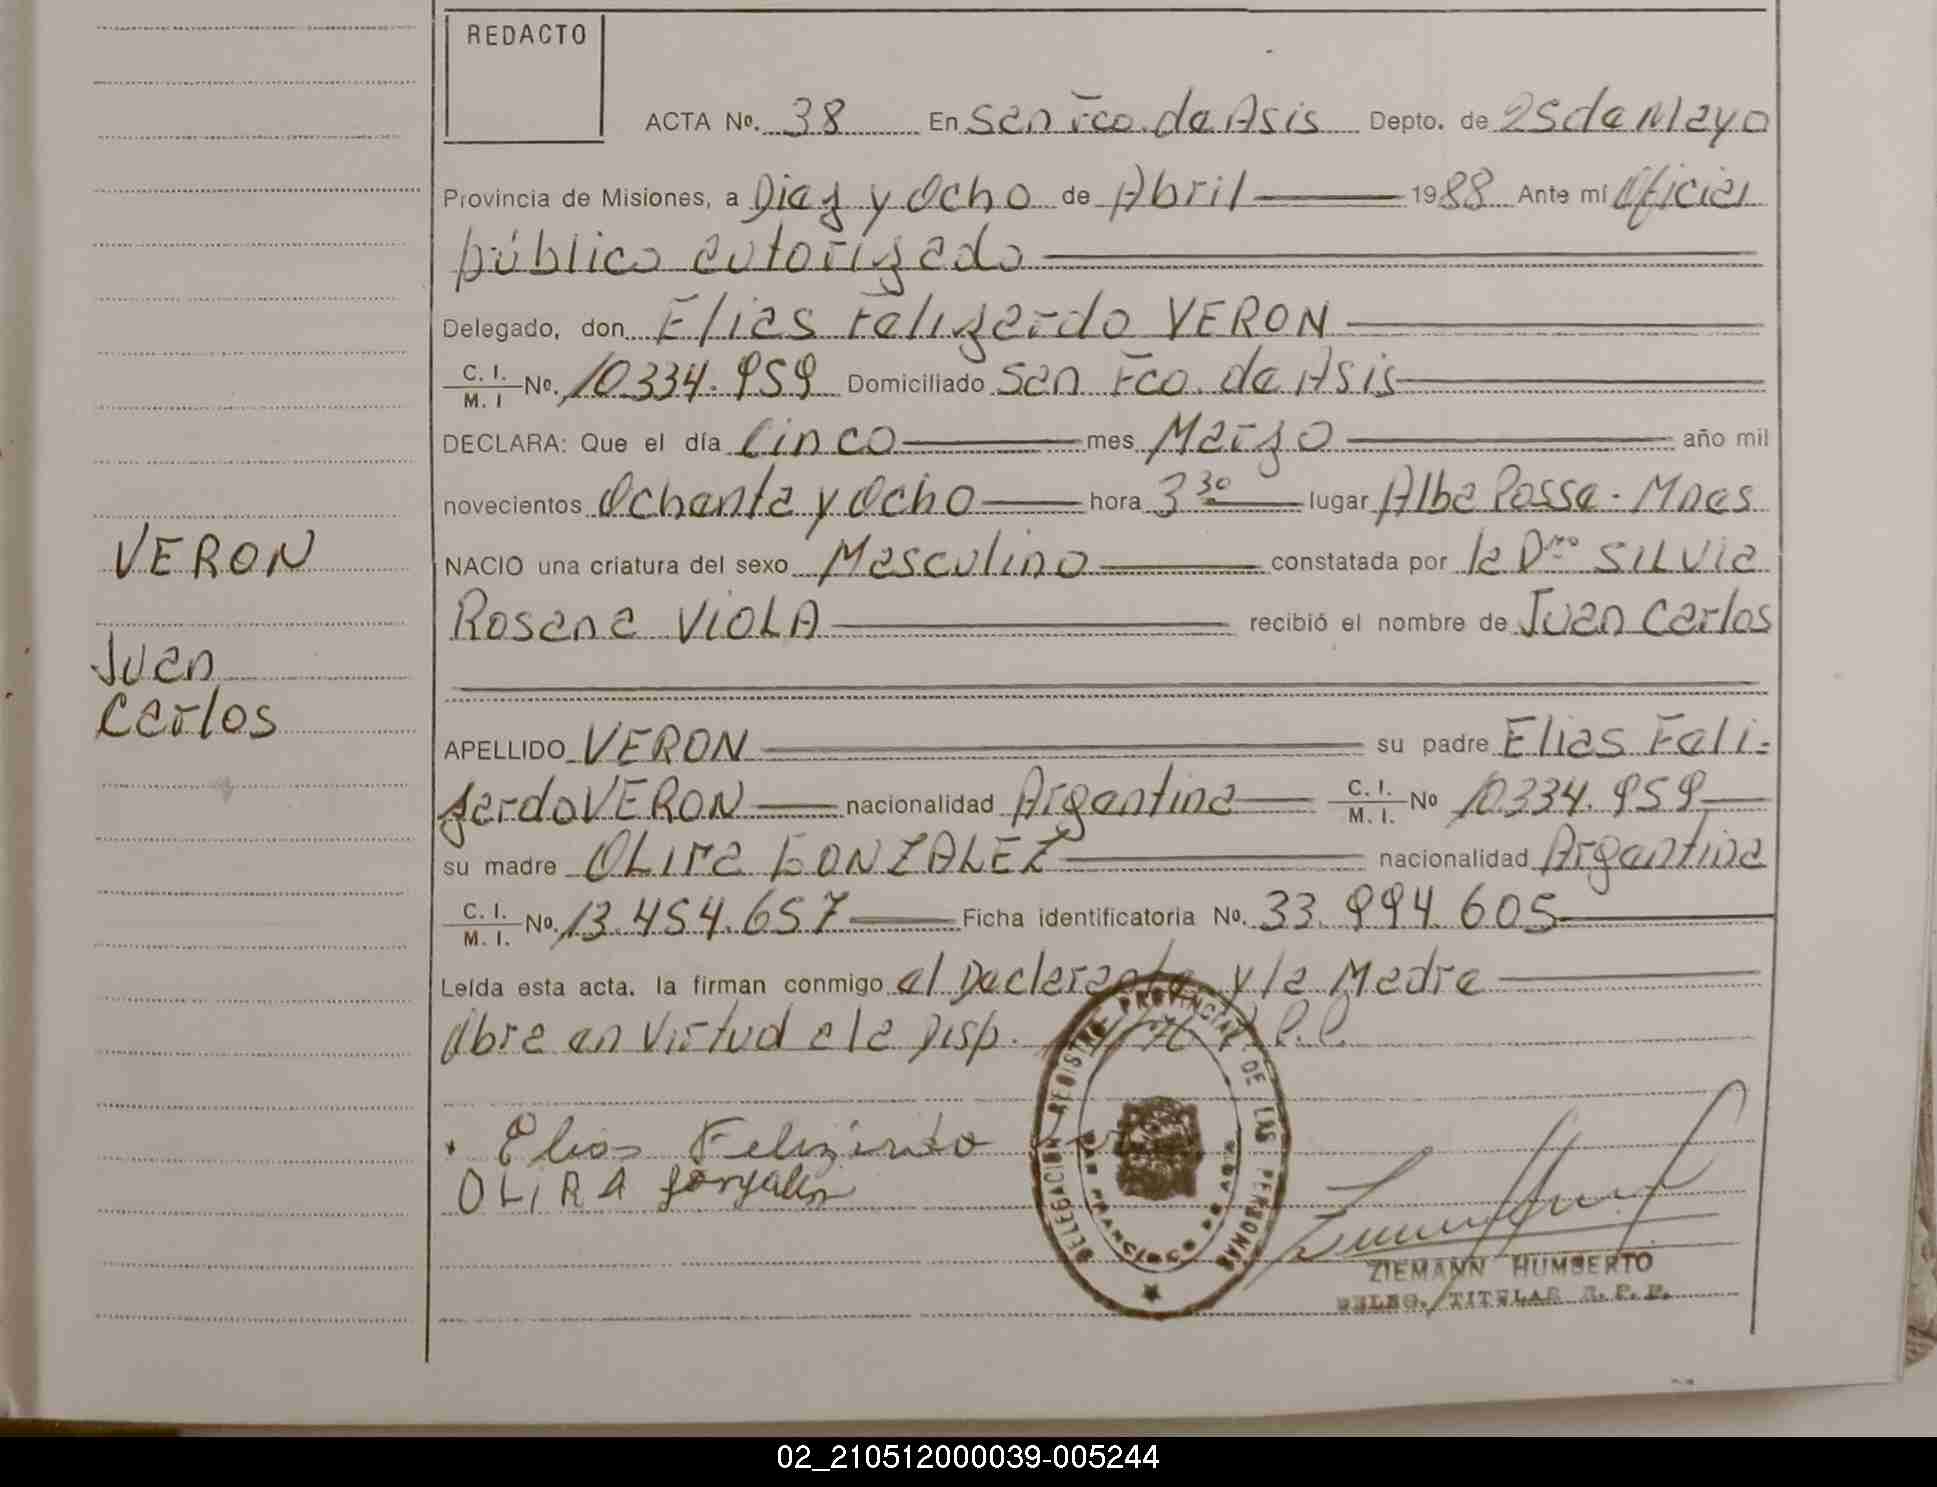 REDACTO
ACTA Nº. 38 En San Fco. de Asis Depto. de 25 de Mayo
Provincia de Misiones, a Diez y Ocho de Abril 1988 Ante mí Oficial
público autorizado
Delegado, don Elias Felizardo VERON
C. I. M. I Nº. 10.334.959 Domiciliado San Fco. de Asis
DECLARA: Que el día Cinco mes Marzo año mil
novecientos Ochenta y Ocho hora 3 30 lugar Alba Posse - Mnes
NACIO una criatura del sexo Masculino constatada por la Dra SILVIa
Rosana VIOLA recibió el nombre de Juan Carlos
VERON
Juan
Carlos
APELLIDO VERON su padre Elias Feli-
zardo VERON nacionalidad Argentina C. I. M. I. Nº 10.334.959
su madre OLIra GONZALEZ nacionalidad Argentina
C. I. M. I. Nº. 13.454.657 Ficha identificatoria Nº. 33.994.605
Leída esta acta, la firman conmigo el Declarante y la Madre
Obra en Virtud a la Disp. R.P.
Elias Felizardo
OLIRA Gonzalez
DELEGACION REGISTRO PROVINCIAL DE LAS PERSONAS
SAN FRANCISCO DE ASIS
ZIEMANN HUMBERTO
DELEG. TITULAR R. P. P.
02_210512000039-005244